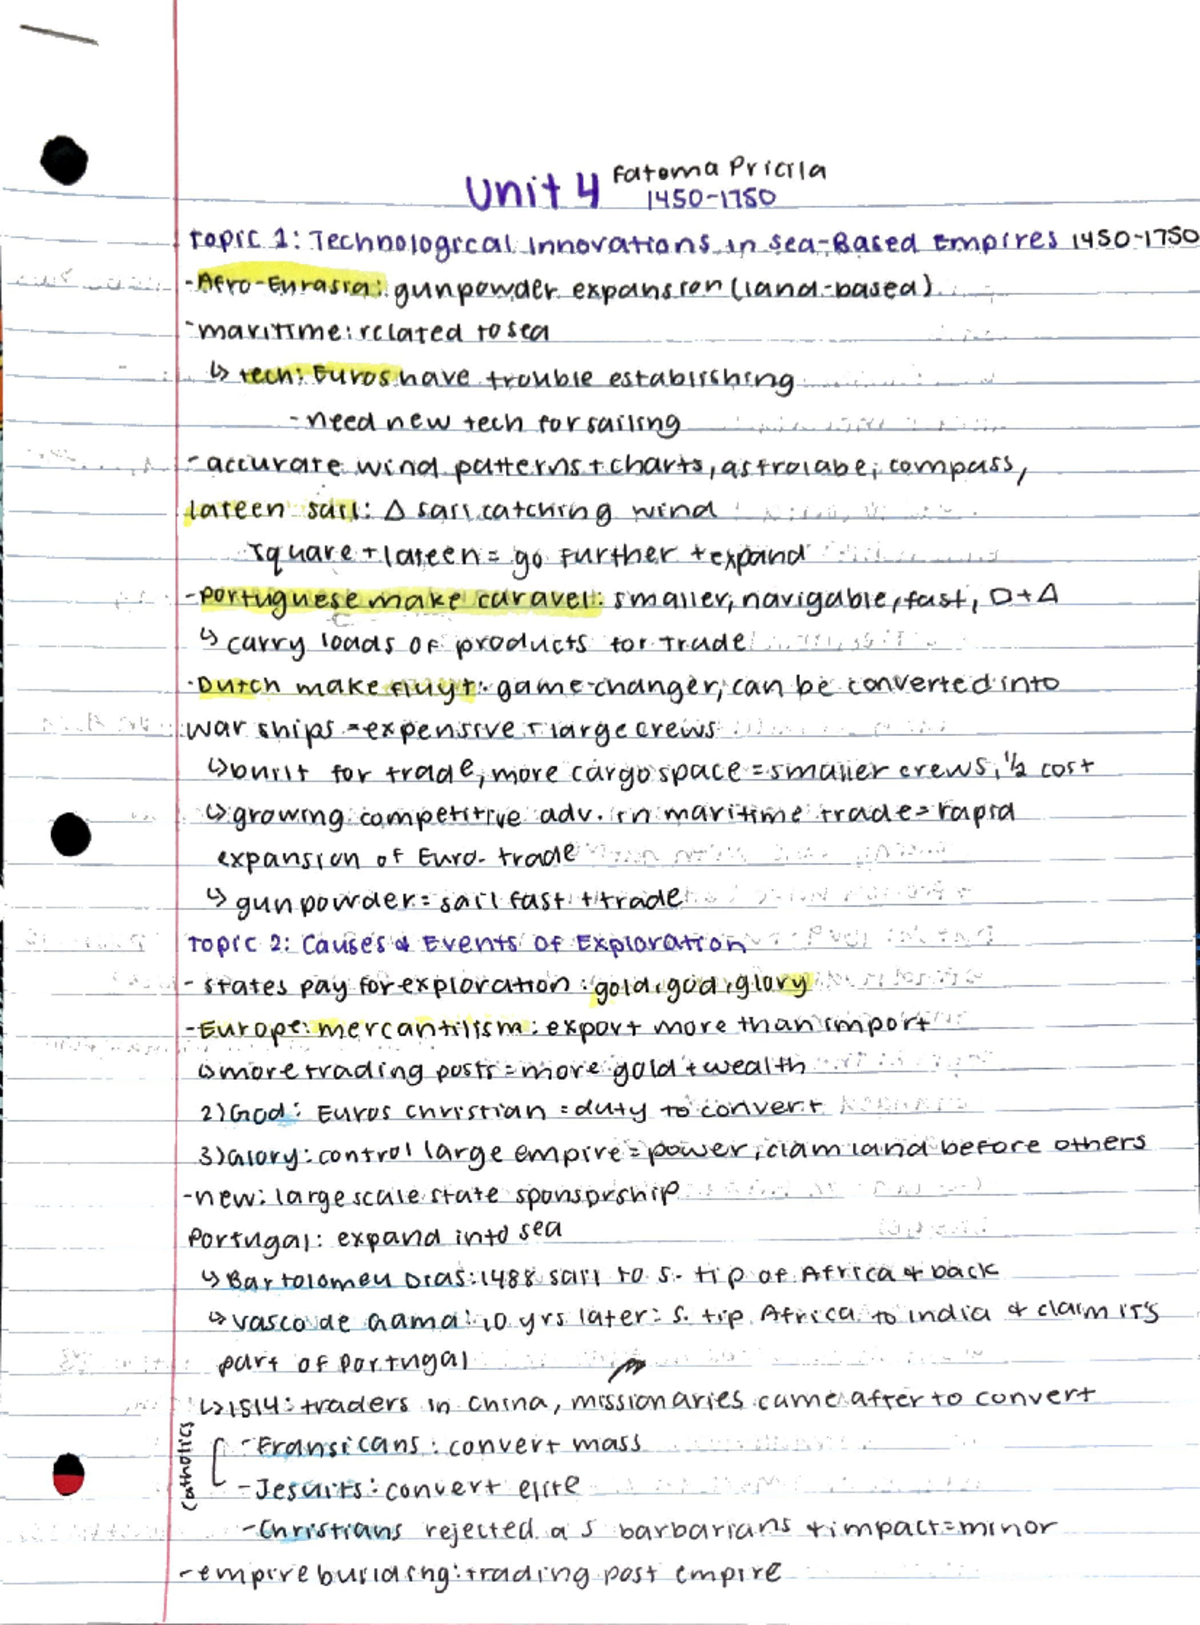 Unit 4 Fatoma Pricila
1450-1750
Topic 1: Technological Innovations in Sea-Based Empires 1450-1750
-Afro-Eurasia: gunpowder expansion (land-based)
-maritime: related to sea
↳ tech: Euros have trouble establishing
-need new tech for sailing
-accurate wind patterns + charts, astrolabe, compass,
lateen sail: Δ sail catching wind
square + lateen = go further + expand
-Portuguese make caravel: smaller, navigable, fast, □+Δ
↳ carry loads of products for trade
-Dutch make fluyt: game-changer, can be converted into
war ships = expensive + large crews
↳ built for trade, more cargo space = smaller crews, ½ cost
↳ growing competitive adv. in maritime trade = rapid
expansion of Euro- trade
↳ gunpowder = sail fast + trade
Topic 2: Causes & Events of Exploration
-states pay for exploration: gold, god, glory
-Europe: mercantilism: export more than import
↳ more trading posts = more gold + wealth
2) God: Euros Christian = duty to convert
3) Glory: control large empire = power, claim land before others
-new: large scale state sponsorship
Portugal: expand into sea
↳ Bartolomeu Dias: 1488 sail to S. tip of Africa & back
↳ Vasco de Gama: 10 yrs later: S. tip Africa to India & claim it's
part of Portugal
↳ 1514: traders in China, missionaries came after to convert
Catholics
-Fransicans: convert mass
-Jesuits: convert elite
-Christians rejected a s barbarians + impact = minor
-empire building: trading post empire